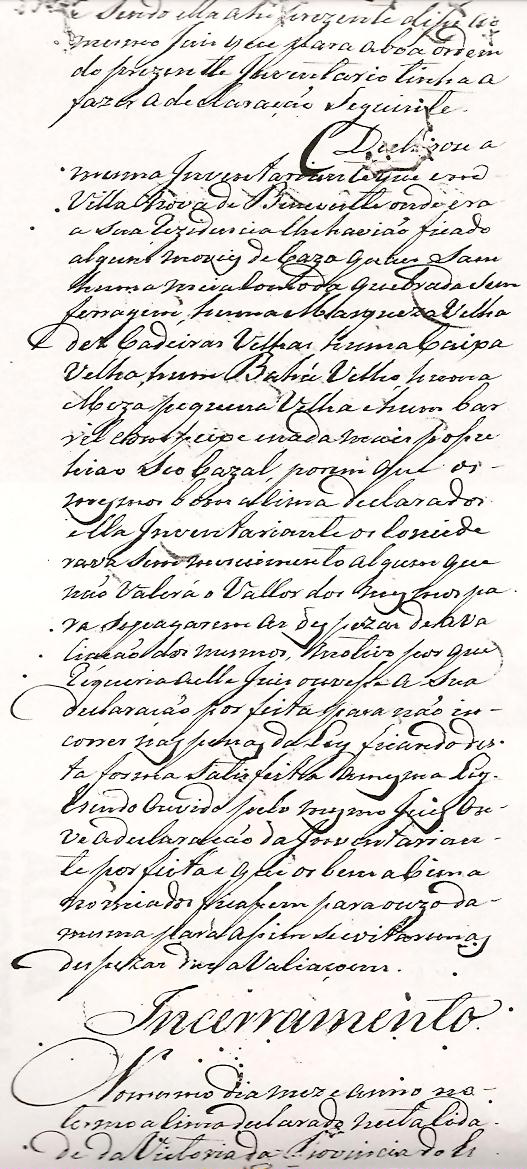 e sendo ella ahi prezente disse ao
mesmo Juis que para a boa ordem
do prezente Inventario tinha a
fazer a declaração Seguinte.
Declarou a
mesma Inventariante que em a
Villa Nova de Benevente onde era
a sua Rezidencia lhe havião ficado
alguns moveis de Caza que sam
huma meia Comoda quebrada Sem
ferragem, huma Marqueza Velha
dez Cadeiras Velhas, huma Caixa
Velha, hum Bahú Velho, huma
Meza pequena Velha e hum bar
ril com e nada mais posue
hia o Seo Cazal, porem que os
mesmos bens assima declarados
ella Inventariante os Conside
rava sem merecimento algum que
não Valerá o Vallor dos mesmos pa
ra se pagarem as despezas de ava
liacão dos mesmos, motivo por que
Requeria a elle Juis ouvesse a Sua
declaracão por feita para não in-
correr nas penas da Ley ficando des-
ta forma Satisfeita a mesma Ley.
E sendo Ouvido pelo mesmo Juis ou-
ve a declaracão da Inventarian-
te por feita e que os bens a Cima
nomiados ficassem para o uzo da
mesma para assim se evitar mais
despezas de a Valiacoens.
Incerramento
No mesmo dia mez e anno no
termo a Sima declarado nesta Cida-
de da Victoria da Provincia do Es